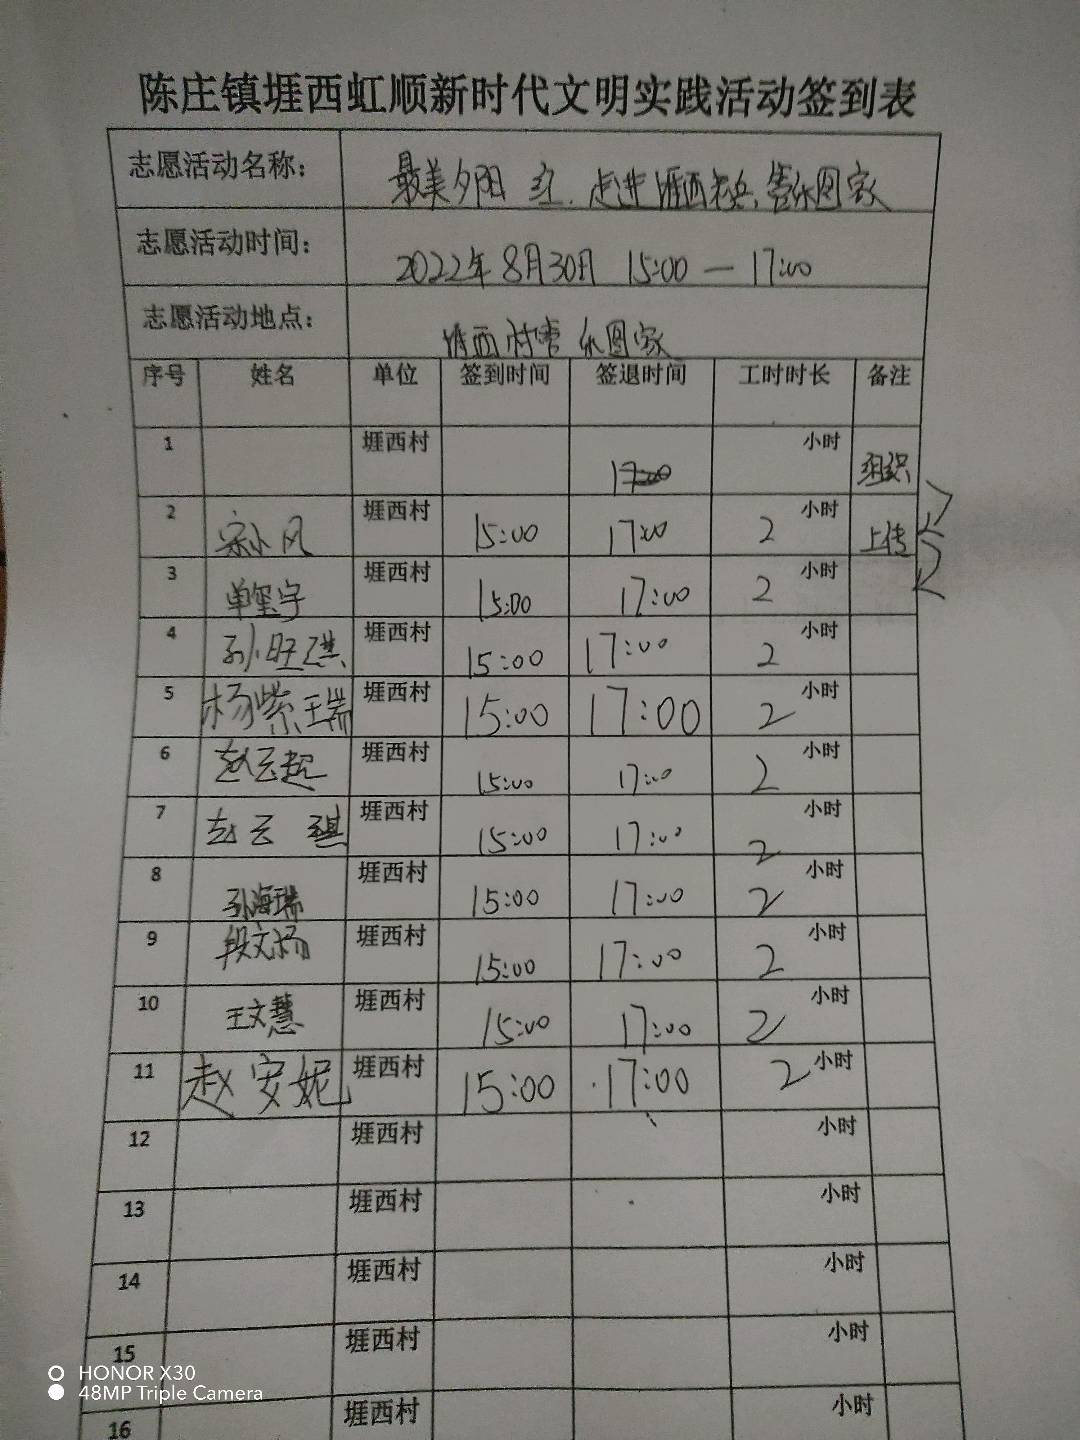 陈庄镇堐西虹顺新时代文明实践活动签到表
志愿活动名称: 最美夕阳 红. 走进堐西老兵、曹乐图家
志愿活动时间: 2022年8月30日 15:00 — 17:00
志愿活动地点: 堐西村曹乐图家
序号 姓名 单位 签到时间 签退时间 工时时长 备注
1 堐西村 小时 组织
2 宋小风 堐西村 15:00 17:00 2 小时 上传
3 单玺宇 堐西村 15:00 17:00 2 小时
4 孙旺琪 堐西村 15:00 17:00 2 小时
5 杨紫瑞 堐西村 15:00 17:00 2 小时
6 赵云起 堐西村 15:00 17:00 2 小时
7 赵云琪 堐西村 15:00 17:00 2 小时
8 孙海瑞 堐西村 15:00 17:00 2 小时
9 段文杨 堐西村 15:00 17:00 2 小时
10 王文慧 堐西村 15:00 17:00 2 小时
11 赵安妮 堐西村 15:00 17:00 2 小时
12 堐西村 小时
13 堐西村 小时
14 堐西村 小时
15 堐西村 小时
16 堐西村 小时
HONOR X30
48MP Triple Camera